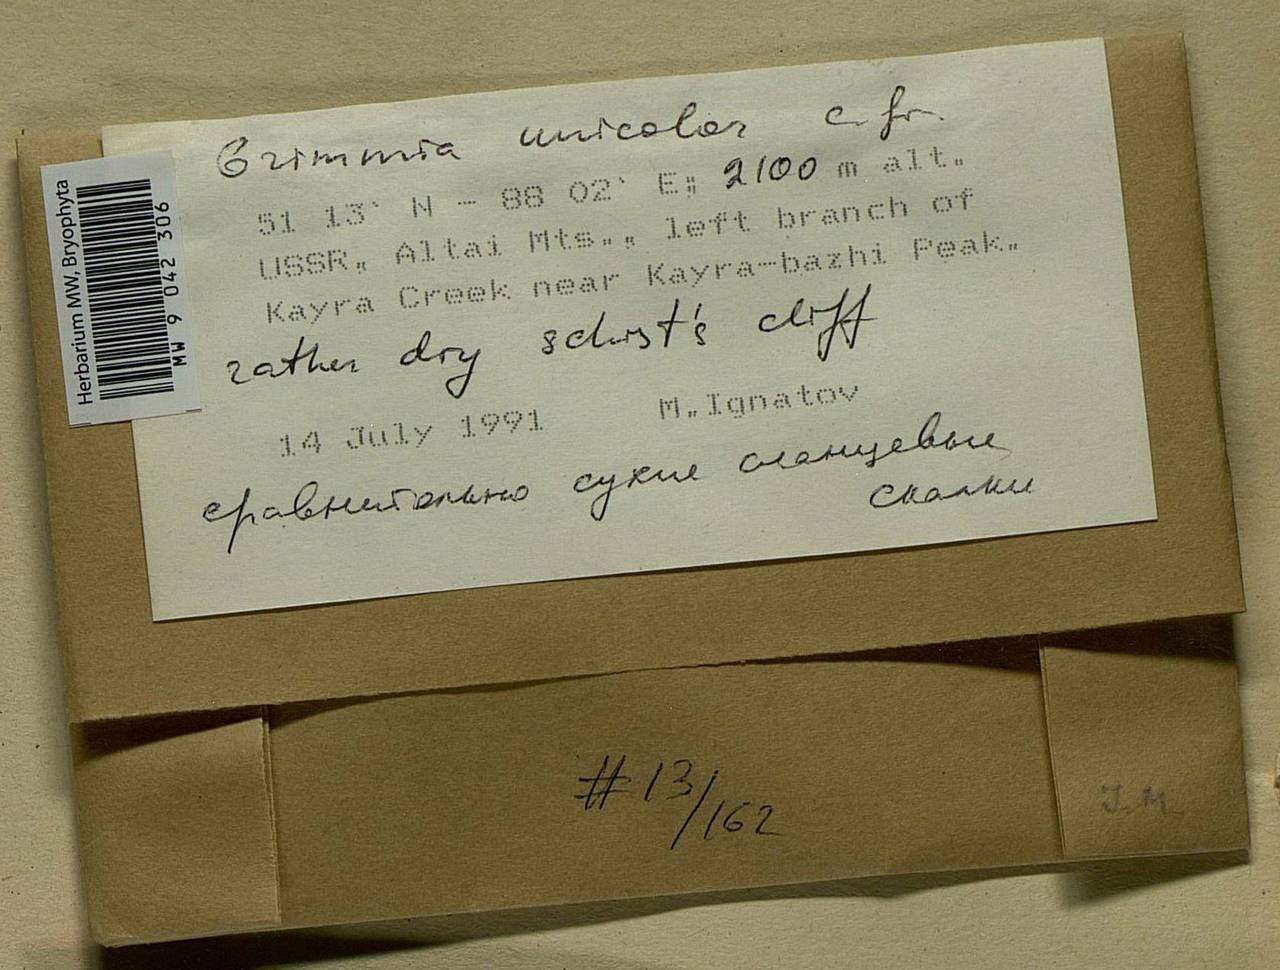 Grimmia unicolor c. fr.
51 13` N - 88 02` E; 2100 m alt.
USSR, Altai Mts., left branch of
Kayra Creek near Kayra-bazhi Peak.
rather dry schist's cliff
14 July 1991 M.Ignatov
сравнительно сухие сланцевые
скалки
Herbarium MW, Bryophyta
MW 9 042 306
#13/162
I.M.